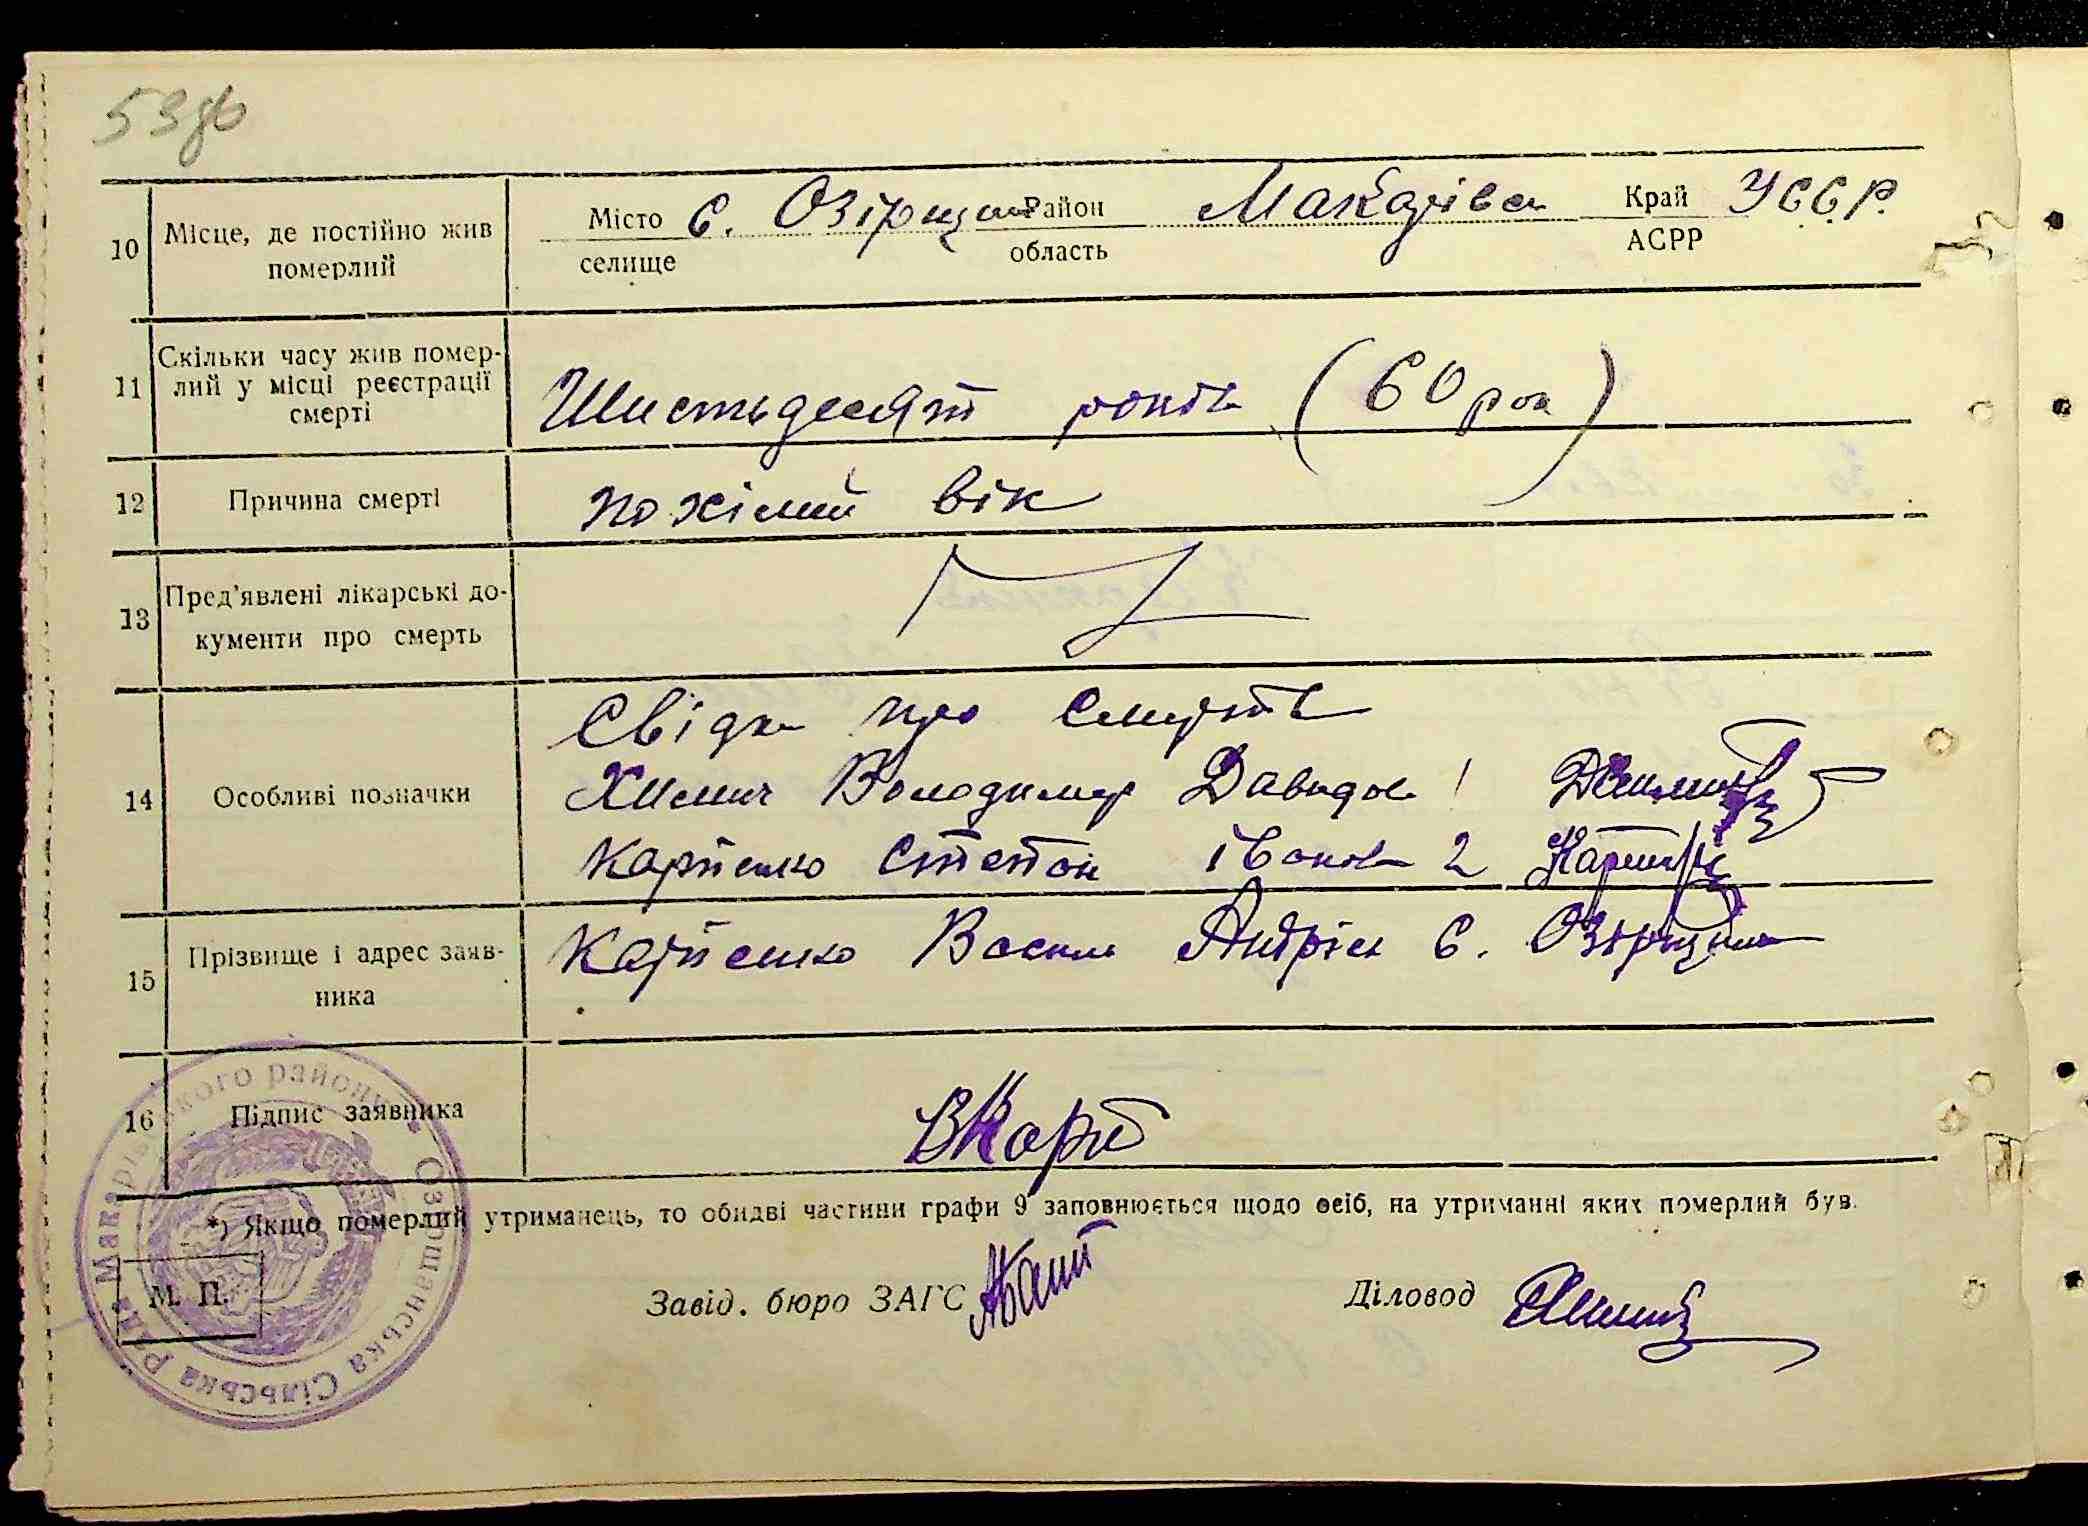 53зв
10 Місце, де постійно жив померлий
Місто селище с. Озірщин Район область Макарівсь Край АСРР УССР.
11 Скільки часу жив помер-
лий у місці реєстрації
смерті
Шистьдесят років (60 рок)
12 Причина смерті
пожілий вік
13 Пред'явлені лікарські до-
кументи про смерть
14 Особливі позначки
Свідки про смерть
Химич Володимир Давидов 1
Карпенко Степон Івонов 2
15 Прізвище і адрес заяв-
ника
Карпенко Василь Андрієв с. Озірщина
16 Підпис заявника
ВКарп
*) Якщо померлий утриманець, то обидві частини графи 9 заповнюється щодо осіб, на утриманні яких померлий був.
М. П.
Завід. бюро ЗАГС
Діловод
Озірщанська Сільська рада Макарівського району